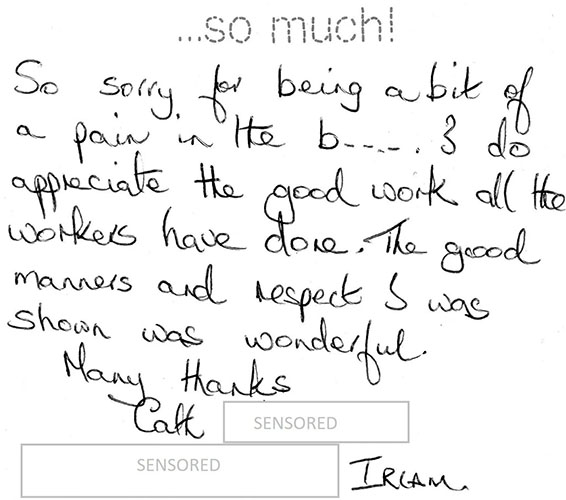 ...so much!
So sorry for being a bit of
a pain in the b----. I do
appreciate the good work all the
workers have done. The good
manners and respect I was
shown was wonderful.
Many thanks
Cath SENSORED
SENSORED IRLAM.